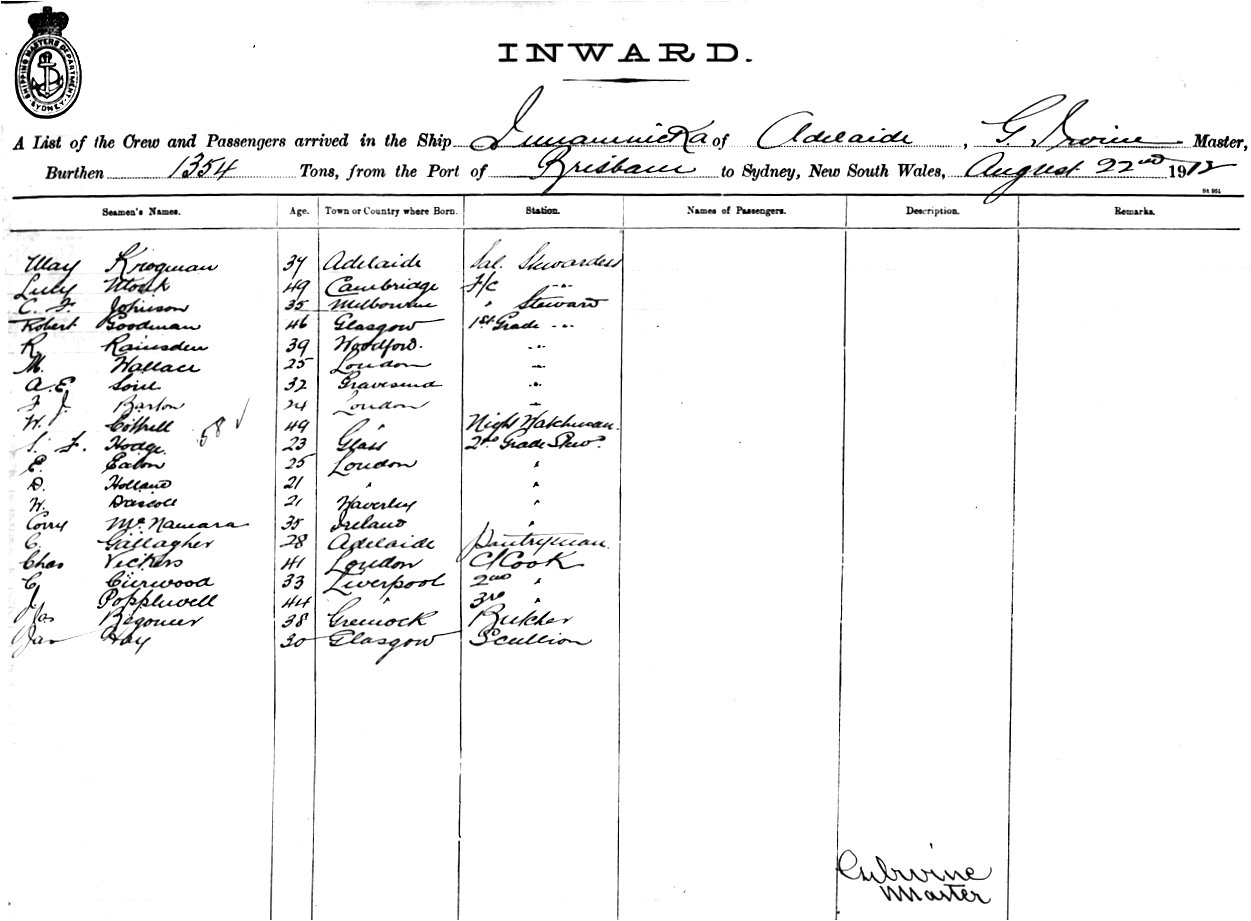 SHIPPING MASTERS DEPARTMENT. SYDNEY
INWARD.
A List of the Crew and Passengers arrived in the Ship of Adelaide, G. Irvine Master,
Burthen 1354 Tons, from the Port of Brisbane to Sydney, New South Wales, August 22nd 1912
St 951
Seamen's Names. Age. Town or Country where Born. Station. Names of Passengers. Description. Remarks.
May Krogman 37 Adelaide Sal. Stewardess
Lucy 49 Cambridge F/c " "
C. F. Johnson 35 Melbourne " Steward
Robert Goodman 46 Glasgow 1st Grade " "
R. Rainsden 39 Woodford. " "
M. Wallace 25 London " "
A. E. 32 Gravesend " "
F. J. Barton 24 London " "
W. Cottrell 49 " Night Watchman.
58 ✓
S. F. Hodge 23 Glas 2nd Grade Stewd.
E. Eaton 25 London "
D. Holland 21 " "
W. Driscoll 21 Waverley "
Corry McNamara 35 Ireland "
C. Gallagher 28 Adelaide Pantryman.
Chas Vickers 41 London C/Cook
C. Curwood 33 Liverpool 2nd "
J. Popplewell 44 " 3rd "
Jas 38 Greenock Butcher
Jas Hay 30 Glasgow Scullion
G Irvine
Master